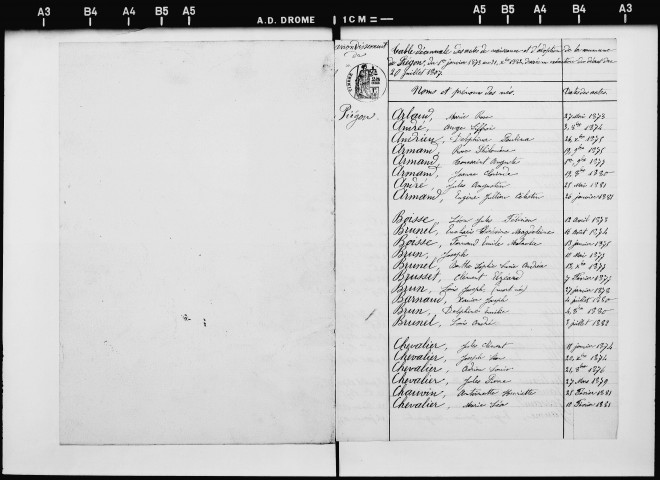 A3 B4 A4 B5 A5 A.D. DROME 1CM = A5 A4 B5 B4 A3
arrondissement de
Table décennale des actes de naissance et d'adoption de la commune
de Piégon, du 1er janvier 1873 au 31 Xbre 1882, dressée en exécution du décret du
20 juillet 1807.
Noms et prénoms des nés. Dates des actes.
Piégon.
Arland, Marie Rose 27 mai 1873
André, Ange 3 8bre 1874
Andrieu, Delphine Paulina 26 Xbre 1875
Armand, Rose Philomène 19 9bre 1875
Armand, Toussaint Auguste 1er 9bre 1877
Armand, Jeanne 13 8bre 1880
André, Jules Augustin 25 mai 1881
Armand, Eugène Jullien Célestin 26 janvier 1881
Boisse, Léon Jules 12 avril 1873
Brunel, Magdeleine 16 août 1874
Boisse, Fernand Emile 13 janvier 1875
Brun, Joseph 10 mai 1875
Brunel, Berthe Sophie Marie Andréa 18 Xbre 1877
Brusset, Clément 7 février 1877
Brun, Louis Joseph (mort né) 27 janvier 1878
Barnaud, Xavier Joseph 4 juillet 1880
Brun, Delphine Emilie 4 8bre 1880
Brunel, Louis André 3 juillet 1882
Chevalier, Jules Clément 18 janvier 1874
Chevalier, Joseph 20 Xbre 1874
Chevalier, Adrien Louis 21 8bre 1876
Chevalier, Jules 27 mars 1879
Chauvin, Antoinette Henriette 25 février 1881
Chevalier, Marie Léa 10 février 1881